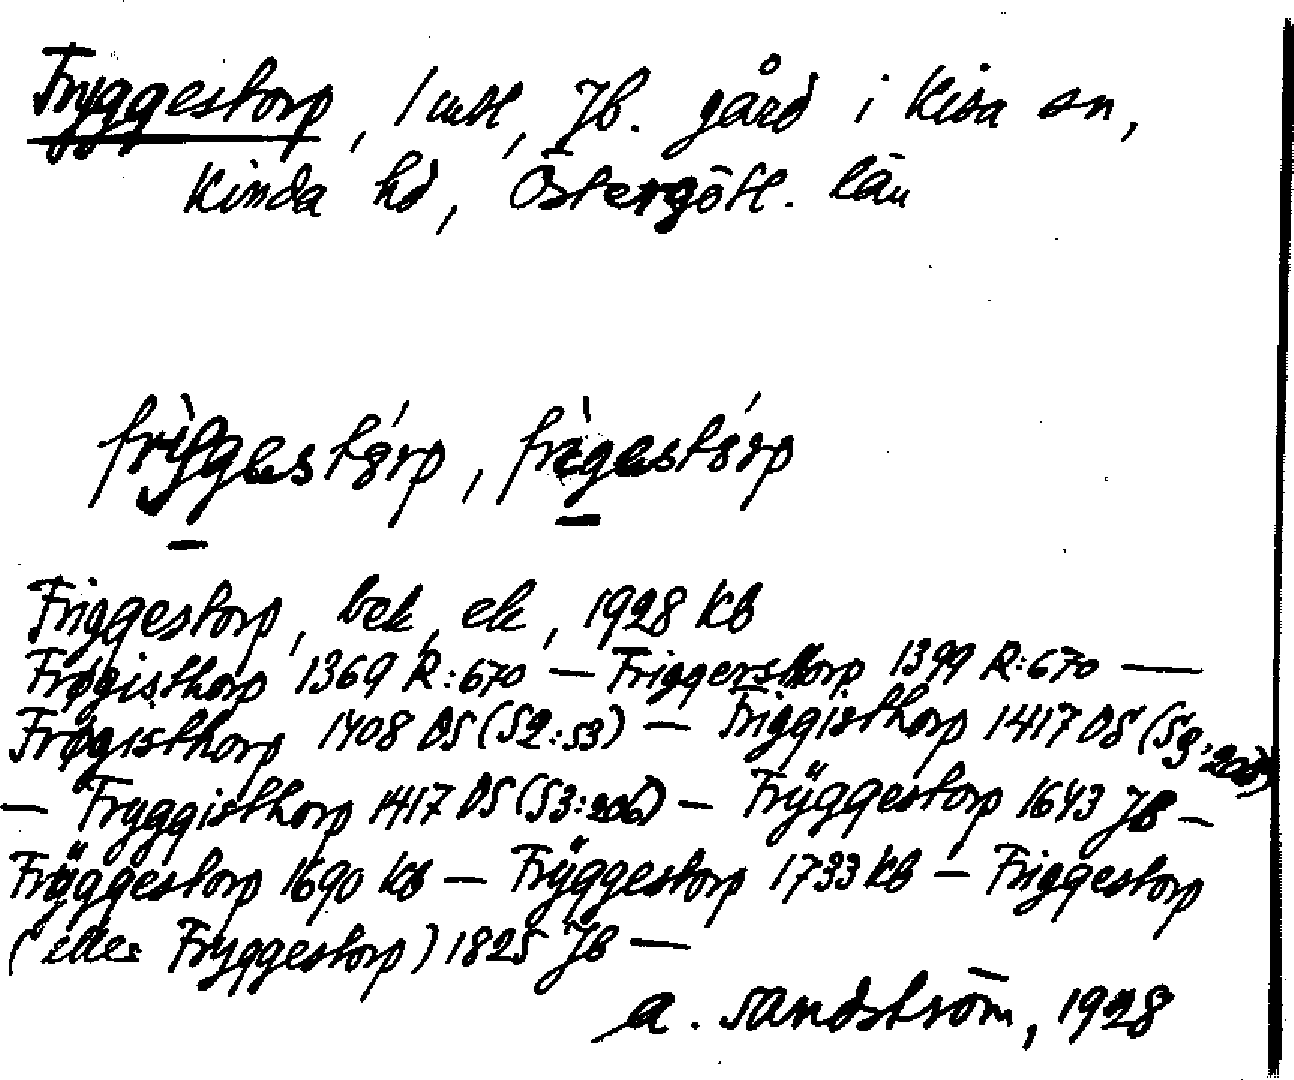 Fryggestorp, 1 mtl, Jb. gård i Kisa sn,
Kinda hd, Östergötl. län
frỳggestórp, frìgestórp
Friggestorp, bek, ek, 1928 KB
Frøgisthorp 1369 R:670 — Friggersthorp 1399 R:670 —
Frøgisthorp 1408 DS (S2:53) — Friggisthorp 1417 DS (S3,206)
— Fryggisthorp 1417 DS (S3:206) — Frÿggestorp 1643 Jb —
Frÿggestorp 1690 KB — Frÿggestorp 1733 KB — Friggestorp
(eller Fryggestorp) 1825 Jb —
A. Sandström, 1928